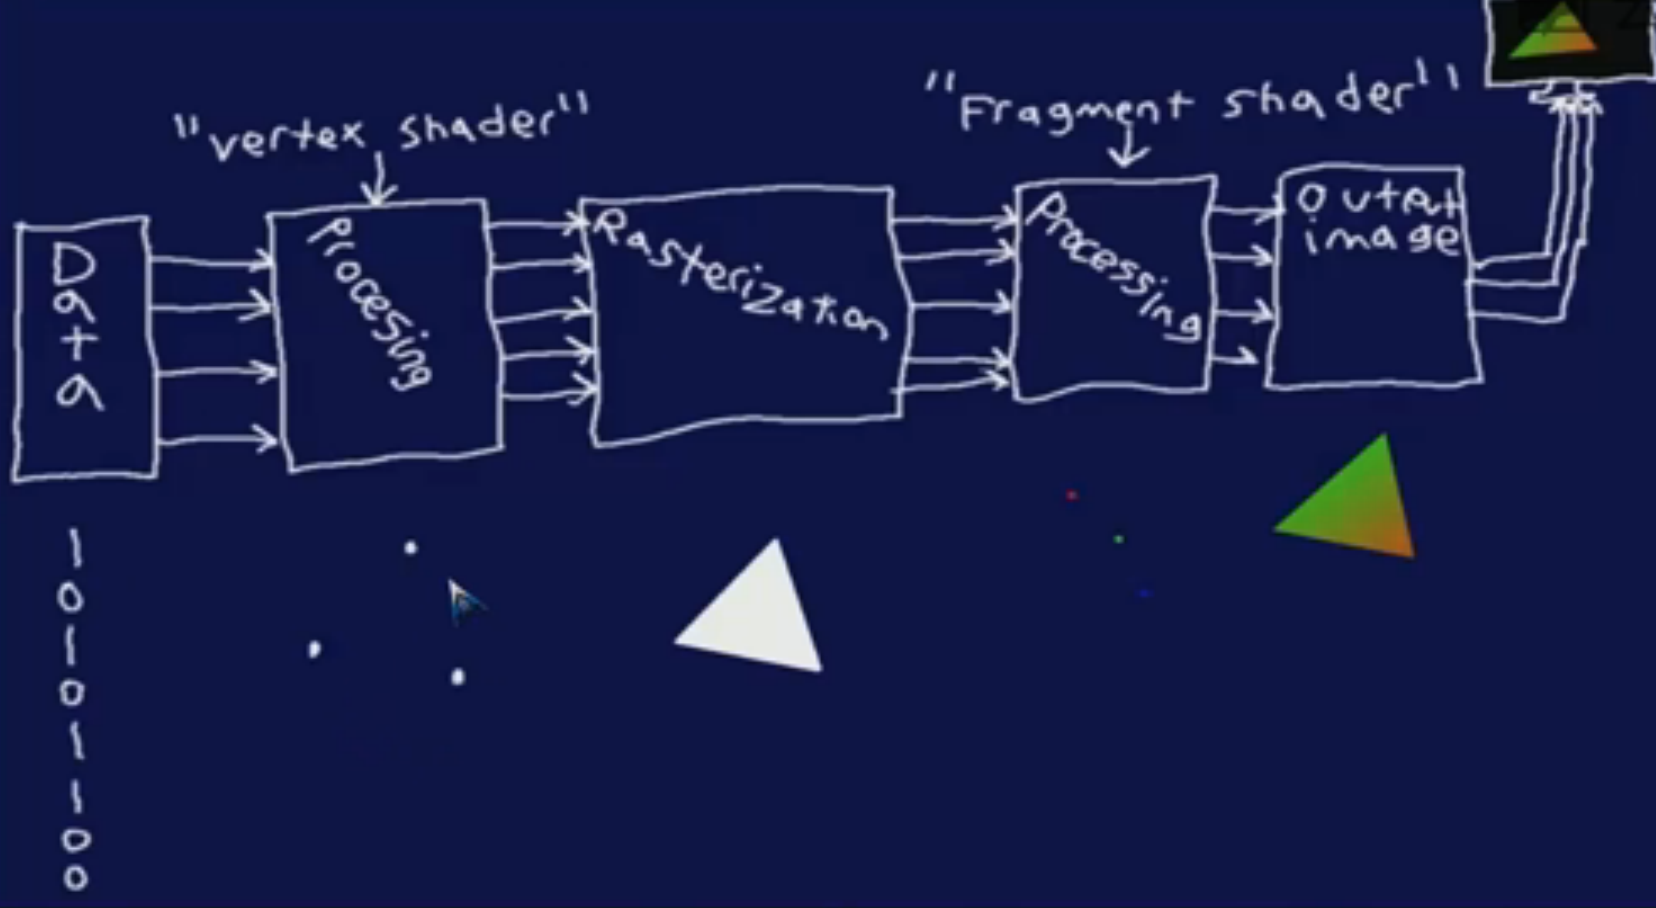 "vertex shader"
"Fragment shader"
Data
Procesing
Rasterization
Processing
Output
image
1
0
1
0
1
1
0
0